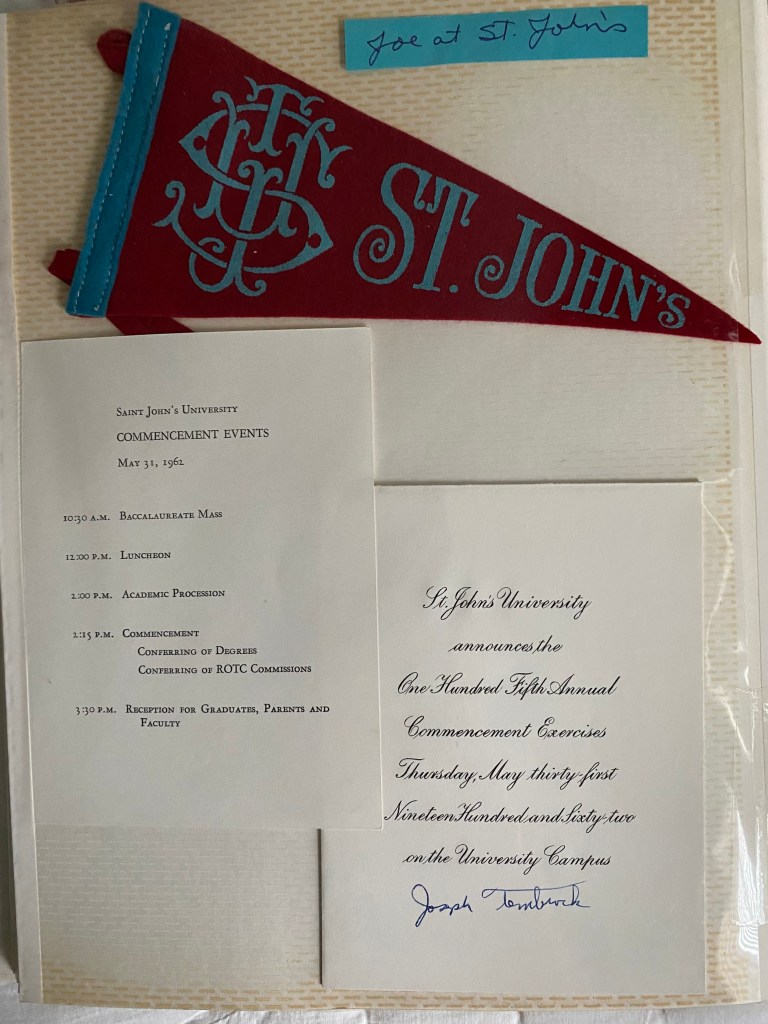 Joe at St. John's
ST. JOHN'S
SAINT JOHN'S UNIVERSITY
COMMENCEMENT EVENTS
MAY 31, 1962
10:30 A.M. BACCALAUREATE MASS
12:00 P.M. LUNCHEON
2:00 P.M. ACADEMIC PROCESSION
2:15 P.M. COMMENCEMENT
CONFERRING OF DEGREES
CONFERRING OF ROTC COMMISSIONS
3:30 P.M. RECEPTION FOR GRADUATES, PARENTS AND
FACULTY
St. John's University
announces the
One Hundred Fifth Annual
Commencement Exercises
Thursday, May thirty-first
Nineteen Hundred and Sixty-two
on the University Campus
Joseph